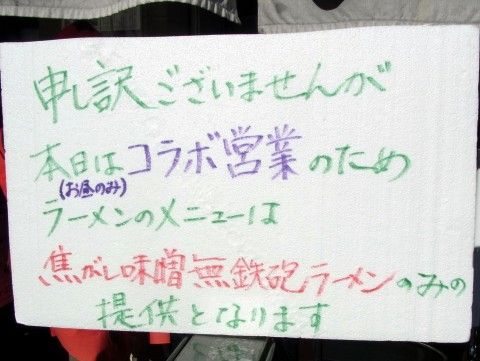 申し訳ございませんが
本日はコラボ営業のため
(お昼のみ)
ラーメンのメニューは
焦がし味噌無鉄砲ラーメンのみの
提供となります